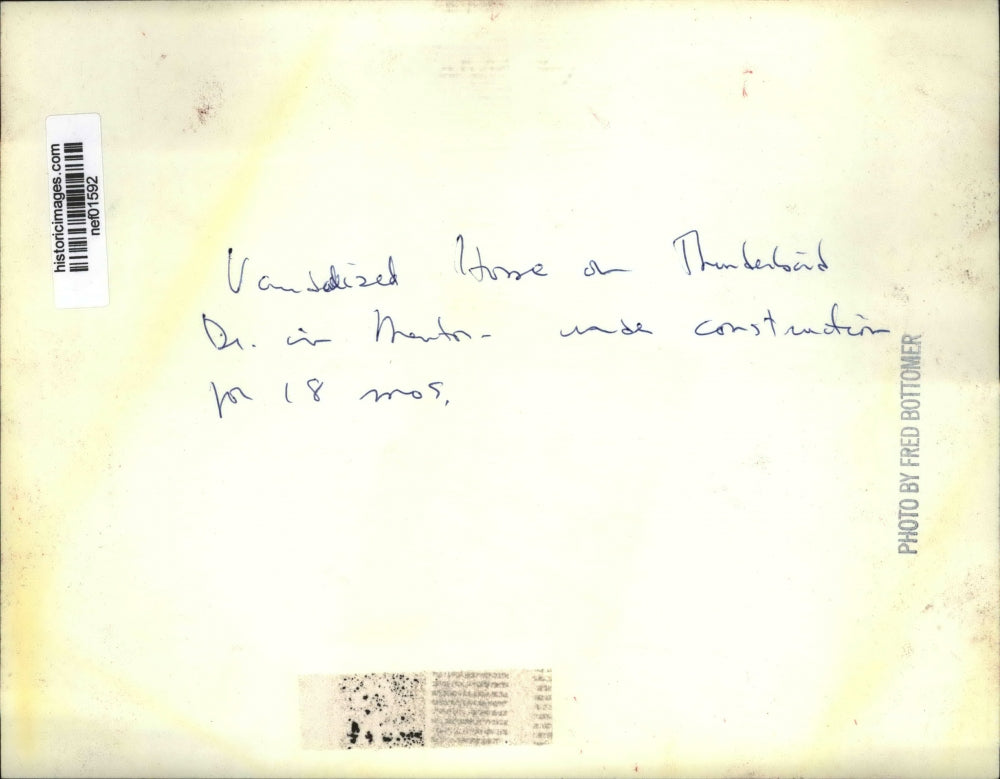 historicimages.com
nef01592
Vandalized House on Thunderbird
Dr. in Mentor - under construction
for 18 mos.
PHOTO BY FRED BOTTOMER